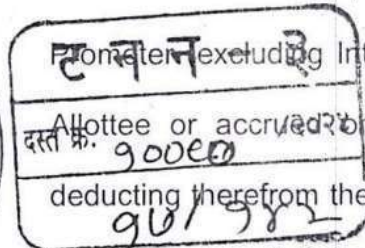 ट न न - २
Promoter (excluding Int
दस्त क्र. /२०२४
Allottee or accrued on
deducting therefrom the
१७/१४२